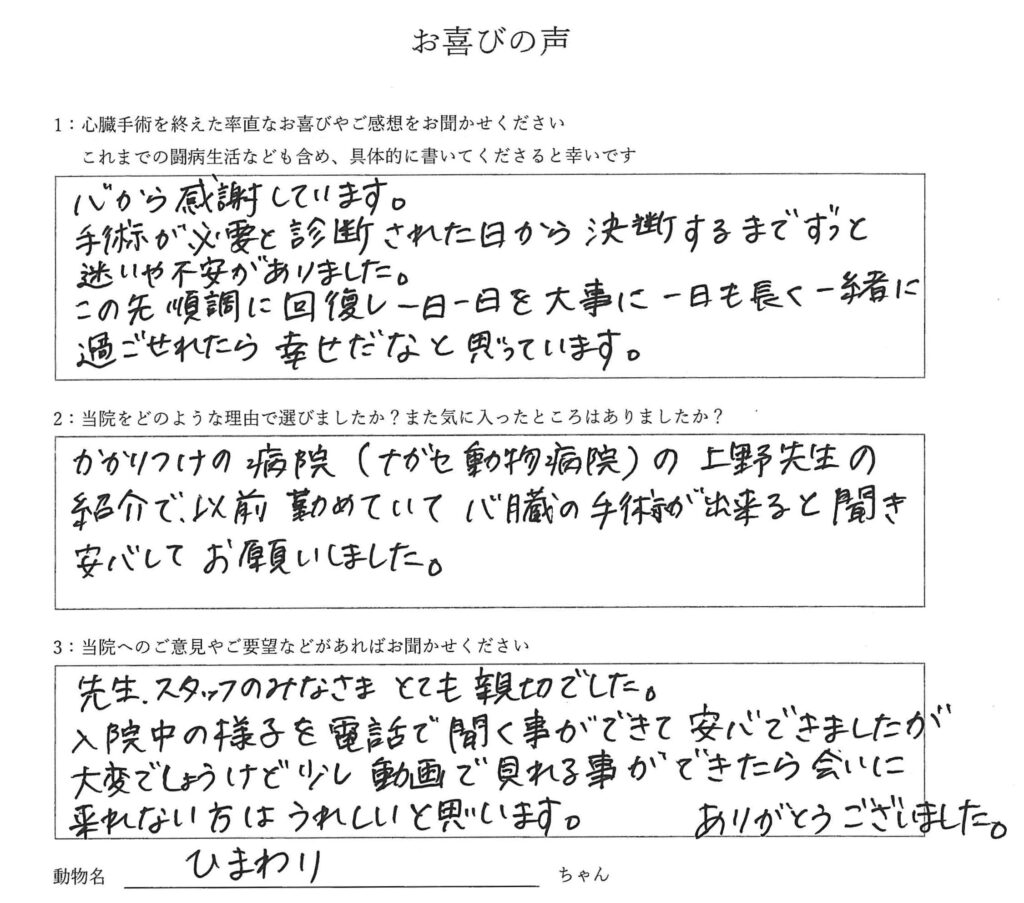 お喜びの声
1：心臓手術を終えた率直なお喜びやご感想をお聞かせください
これまでの闘病生活なども含め、具体的に書いてくださると幸いです
心から感謝しています。
手術が必要と診断された日から決断するまでずっと
迷いや不安がありました。
この先順調に回復し一日一日を大事に一日も長く一緒に
過ごせれたら幸せだなと思っています。
2：当院をどのような理由で選びましたか？また気に入ったところはありましたか？
かかりつけの病院（ながせ動物病院）の上野先生の
紹介で、以前勤めていて心臓の手術が出来ると聞き
安心してお願いしました。
3：当院へのご意見やご要望などがあればお聞かせください
先生、スタッフのみなさまとても親切でした。
入院中の様子を電話で聞く事ができて安心できましたが
大変でしょうけど少し動画で見れる事ができたら会いに
来れない方はうれしいと思います。 ありがとうございました。
動物名 ひまわり ちゃん